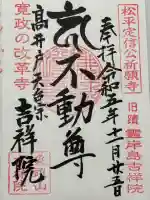 松平定信公祈願寺
旧蹟 霊岸島吉祥院
奉拝 令和五年十一月廿五日
気不動尊
寛政の改革寺
高井戸 天台宗
吉祥院